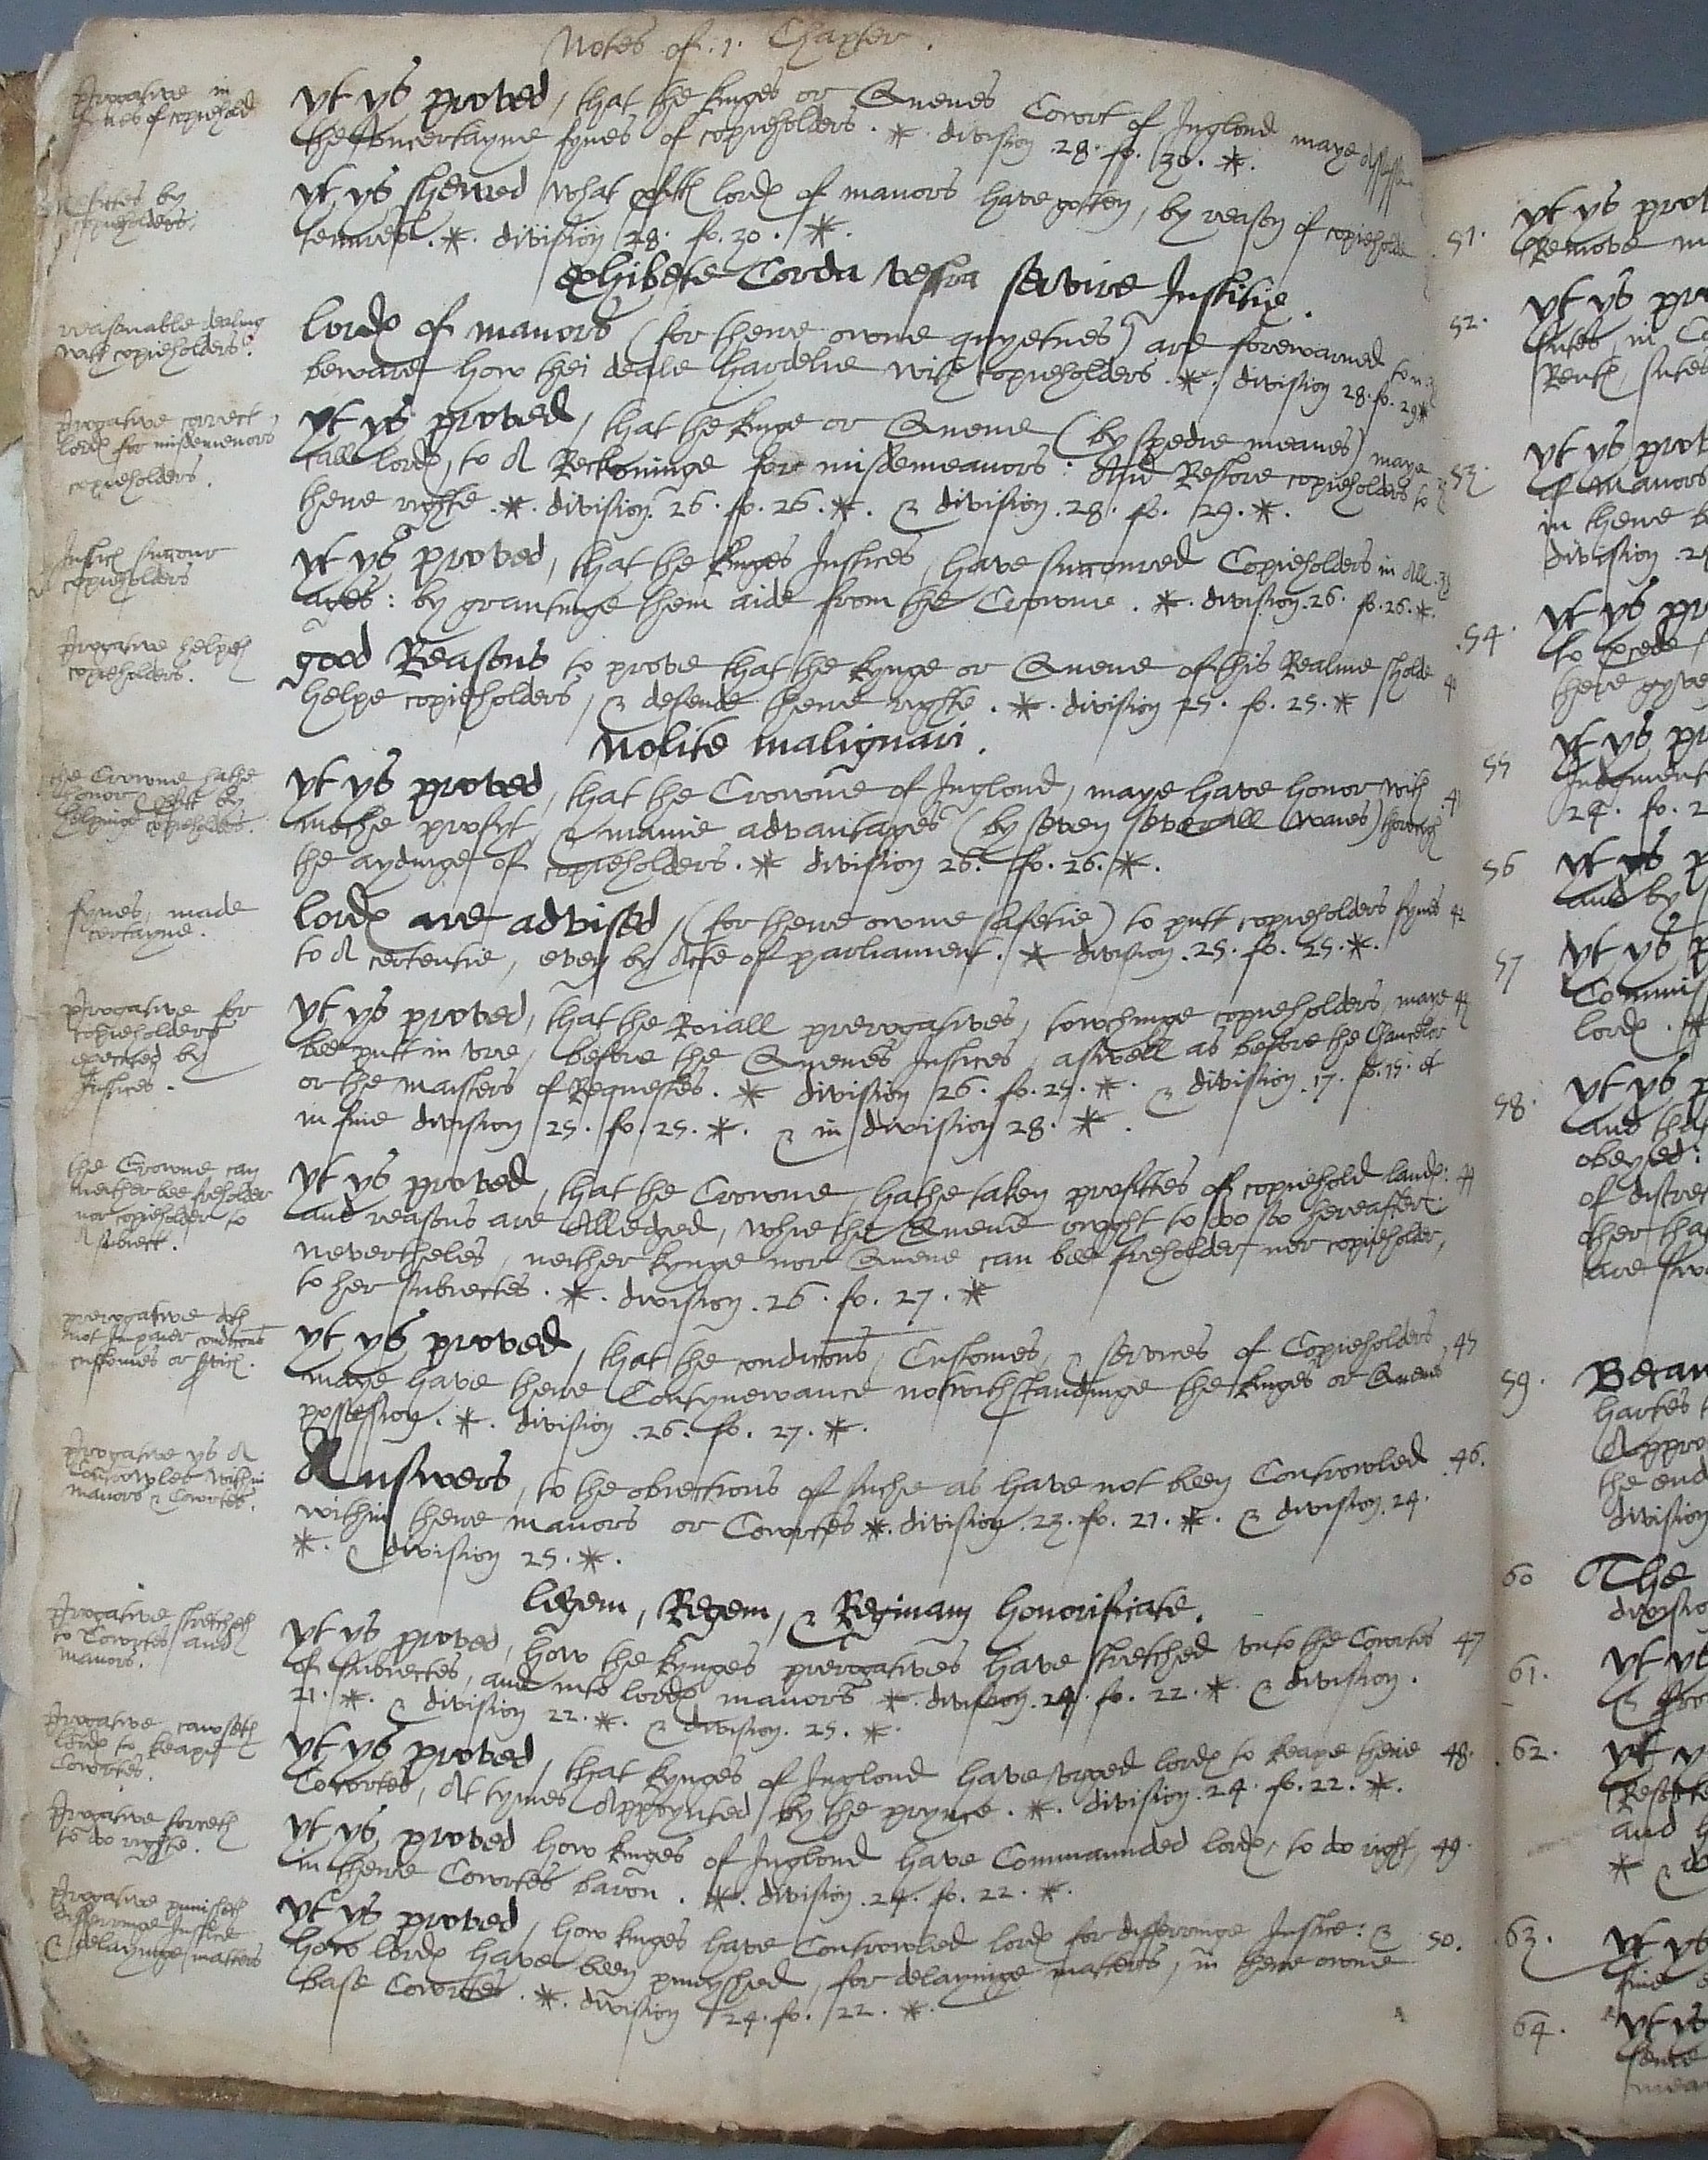 Notes of .1. Chapter.
Progative in
fines of copiehold
yt ys proved, that the kinges or Quenes Cowrt of Inglond maye assesse
the uncertayne fynes of copieholders . * . division .28. fo. 30. *.
by
copieholders.
yt ys shewed what lordes of manors have gotten, by reason of copieholde
tenures . *. division 28. fo. 30. *.
exhibete Corda vestra servire Justicie.
reasonable dealing
with copieholders.
lordes of manors (for there owne quyetnes) are forewarned to
beware how thei deale hardelie with copieholders . *. division 28. fo. 29 *
Progative correct
lordes for misdemenors
copieholders.
yt ys proved, that the kinge or Quene (by spedie meanes) maye
call lordes, to A Reckoninge for misdemeanors : And Restore copieholders to
there righte . *. division. 26. fo. 26. *. & division .28. fo. 29. *.
Justices succour
copieholders
yt ys proved, that the kinges Justices, have succoured Copieholders in All
ages : by grantinge them aide from the Crowne . *. division. 26. fo. 26. *.
Progative helpeth
copieholders.
good Reasons to prove that the kynge or Quene of this Realme sholde
helpe copieholders, & defende there righte . *. division 25. fo. 25. *
Nolite malignari.
the Crowne hathe
honor & by
helpinge copieholders.
yt ys proved, that the Crowne of Inglond, maye have honor with
moche profyt, & manie advantages (by seven severall waies) thorough
the aydinge of copieholders . * division 26. fo. 26. *.
fynes, made
certayne.
lordes are advised, (for there owne safetie) to putt copieholders fynes 42
to A certentie, even by Acte of parliament . * division .25. fo. 25. *.
Progative for
copieholders
executed by
Justices.
yt ys proved, that the Roiall prerogatives, towchinge copieholders, maye 43
bee putt in ure, before the Quenes Justices, aswell as before the Chancelor
or the maisters of Requestes . * division 26. fo. 25. *. & division .17. fo. 15. et
in fine division 25. fo. 25. *. & in division 28. *.
the Crowne can
neither bee freholder
nor copieholder to
A subiect.
yt ys proved, that the Crowne, hathe taken profittes of copiehold landes : 44
and reasons are Alledged, whie the Quene owght to doo so hereafter :
Nevertheles, neither kynge nor Quene can bee freholder nor copieholder,
to her subiectes . *. division .26. fo. 27. *
prerogative doth
not impaier condicions
customes or services.
yt ys proved, that the condicons, Customes, & services of Copieholders, 45
maye have there Contynewance notwithstandinge the kinges or Quenes
possession. *. division .26. fo. 27. *.
Progative ys A
Controwler within
manors & Cowrtes.
Answers, to the obiections of suche as have not been Controwled .46.
within there manors or Cowrtes *. division .23. fo. 21. *. & division. 24.
*. & division 25. *.
legem, Regem, & Reginam honorificate.
Progative stretcheth
to Cowrtes and
manors.
yt ys proved, how the kynges prerogatives have stretched unto the Cowrtes 47
of subiectes, and into lordes manors *. division. 24. fo. 22. *. & division.
21. *. & division 22. *. & division. 25. *.
Progative cawseth
lordes to keape
Cowrtes.
yt ys proved, that kynges of Inglond have urged lordes to keape there 48.
Cowrtes, At tymes Appoynted by the prynce. *. division. 24. fo. 22. *.
Progative forceth
to do righte.
yt ys proved how kinges of Inglond have Commaunded lordes, to do right, 49.
in there Cowrtes baron. *. division. 24. fo. 22. *.
Progative punisheth
differringe Justice
& delayinge matters
yt ys proved, how kinges have Controwled lordes for differringe Justice : & 50.
how lordes have been punyshed, for delayinge matters, in there owne
base Cowrtes. *. division 24. fo. 22. *.
51. yt ys
Remove
52. yt ys
sutes, in
Rentes, sutes
53 yt ys
of manors
in there
division. 2
54. yt ys
to
there
55 yt ys
24. fo. 2
56 yt ys
and by
57 yt ys
lordes . *
58. yt ys
and
obeyed :
of
other
are
59. Becau
hartes
Appro
the end
division
60 The
divisio
61. yt ys
62. yt y
and
* &
63. yt ys
64. yt ys